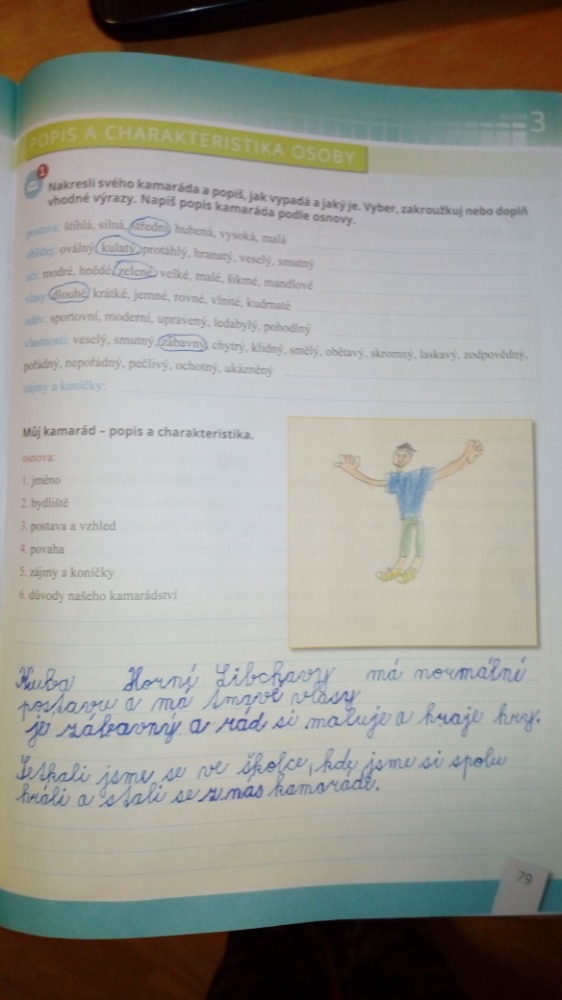 3
POPIS A CHARAKTERISTIKA OSOBY
1
Nakresli svého kamaráda a popiš, jak vypadá a jaký je. Vyber, zakroužkuj nebo doplň
vhodné výrazy. Napiš popis kamaráda podle osnovy.
postava: štíhlá, silná, střední, hubená, vysoká, malá
obličej: oválný, kulatý, protáhlý, hranatý, veselý, smutný
oči: modré, hnědé, zelené, velké, malé, šikmé, mandlové
vlasy: dlouhé, krátké, jemné, rovné, vlnité, kudrnaté
oděv: sportovní, moderní, upravený, ledabylý, pohodlný
vlastnosti: veselý, smutný, zábavný, chytrý, klidný, smělý, obětavý, skromný, laskavý, zodpovědný,
pořádný, nepořádný, pečlivý, ochotný, ukázněný
zájmy a koníčky:
Můj kamarád – popis a charakteristika.
osnova:
1. jméno
2. bydliště
3. postava a vzhled
4. povaha
5. zájmy a koníčky
6. důvody našeho kamarádství
Kuba Horní Libchavy má normální
postavu a má tmavé vlasy
je zábavný a rád si maluje a hraje hry.
Setkali jsme se ve školce, kde jsme si spolu
hráli a stali se z nás kamarádi.
79